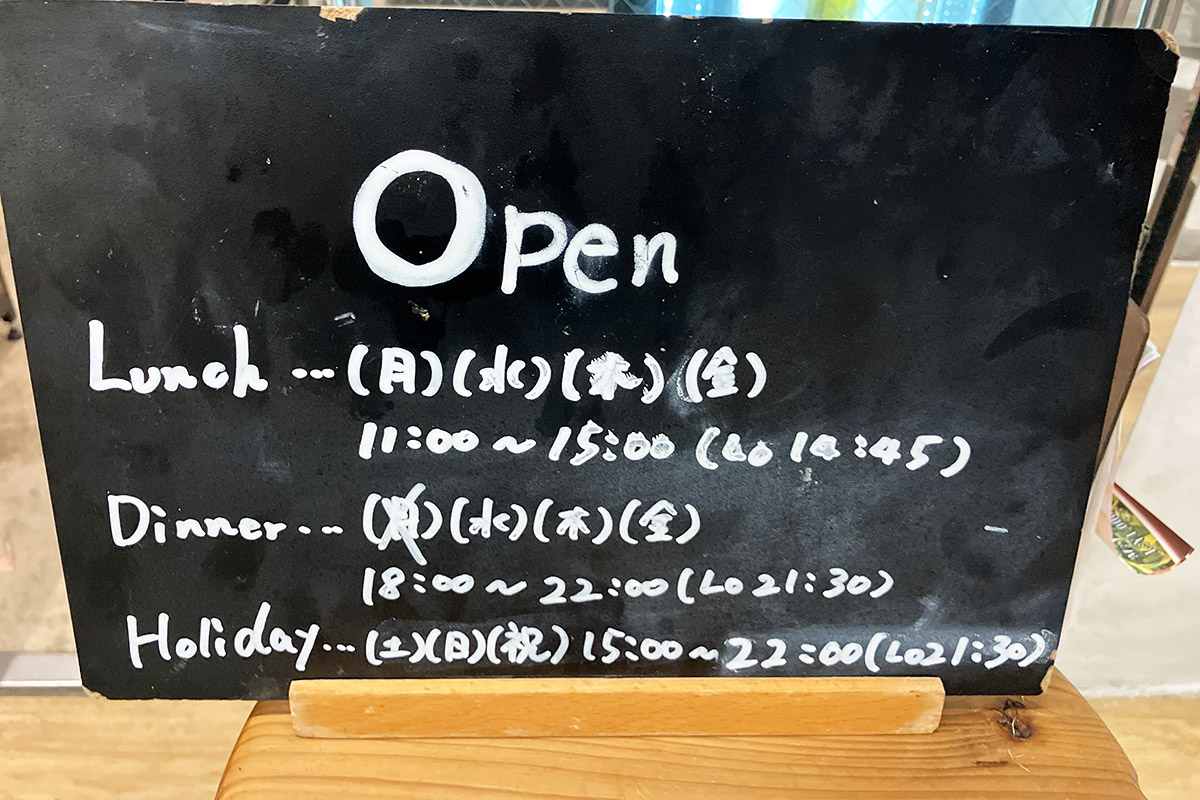 Open
Lunch…(月)(水)(木)(金)
11:00～15:00 (Lo 14:45)
Dinner…(月)(水)(木)(金)
18:00～22:00(Lo 21:30)
Holiday…(土)(日)(祝) 15:00～22:00(Lo21:30)